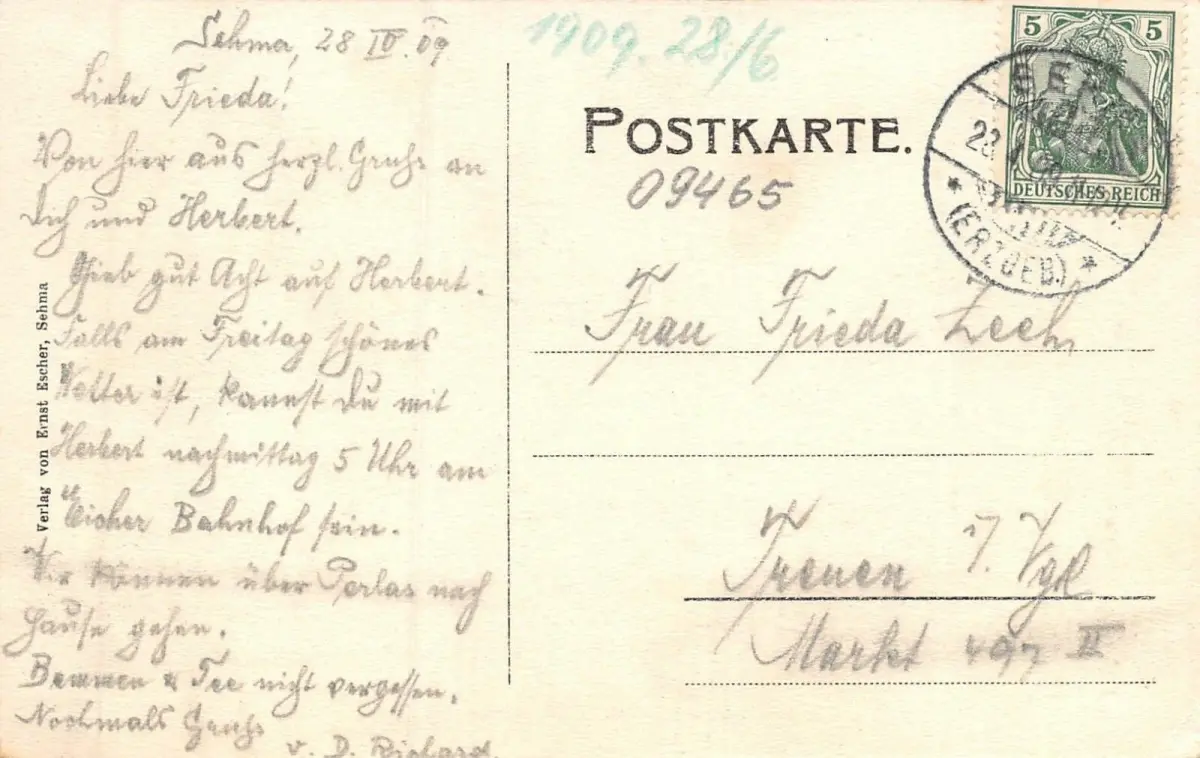 Sehma, 28 IV. 09
Liebe Frieda!
Von hier aus herzl. Gruhs an
Dich und Herbert.
Gieb gut Acht auf Herbert.
Falls am Freitag schönes
Wetter ist, kannst Du mit
Herbert nachmittag 5 Uhr am
Eicher Bahnhof sein.
Wir können über Perlas nach
Hause gehen.
Bemmen & Tee nicht vergessen.
Nochmals Gruhs
v. D. Richard.
Verlag von Ernst Escher, Sehma
1909. 28/6
POSTKARTE.
09465
5 5
DEUTSCHES REICH
(ERZGEB.)
Frau Frieda Zeeh
Treuen i/. Vgl
Markt II